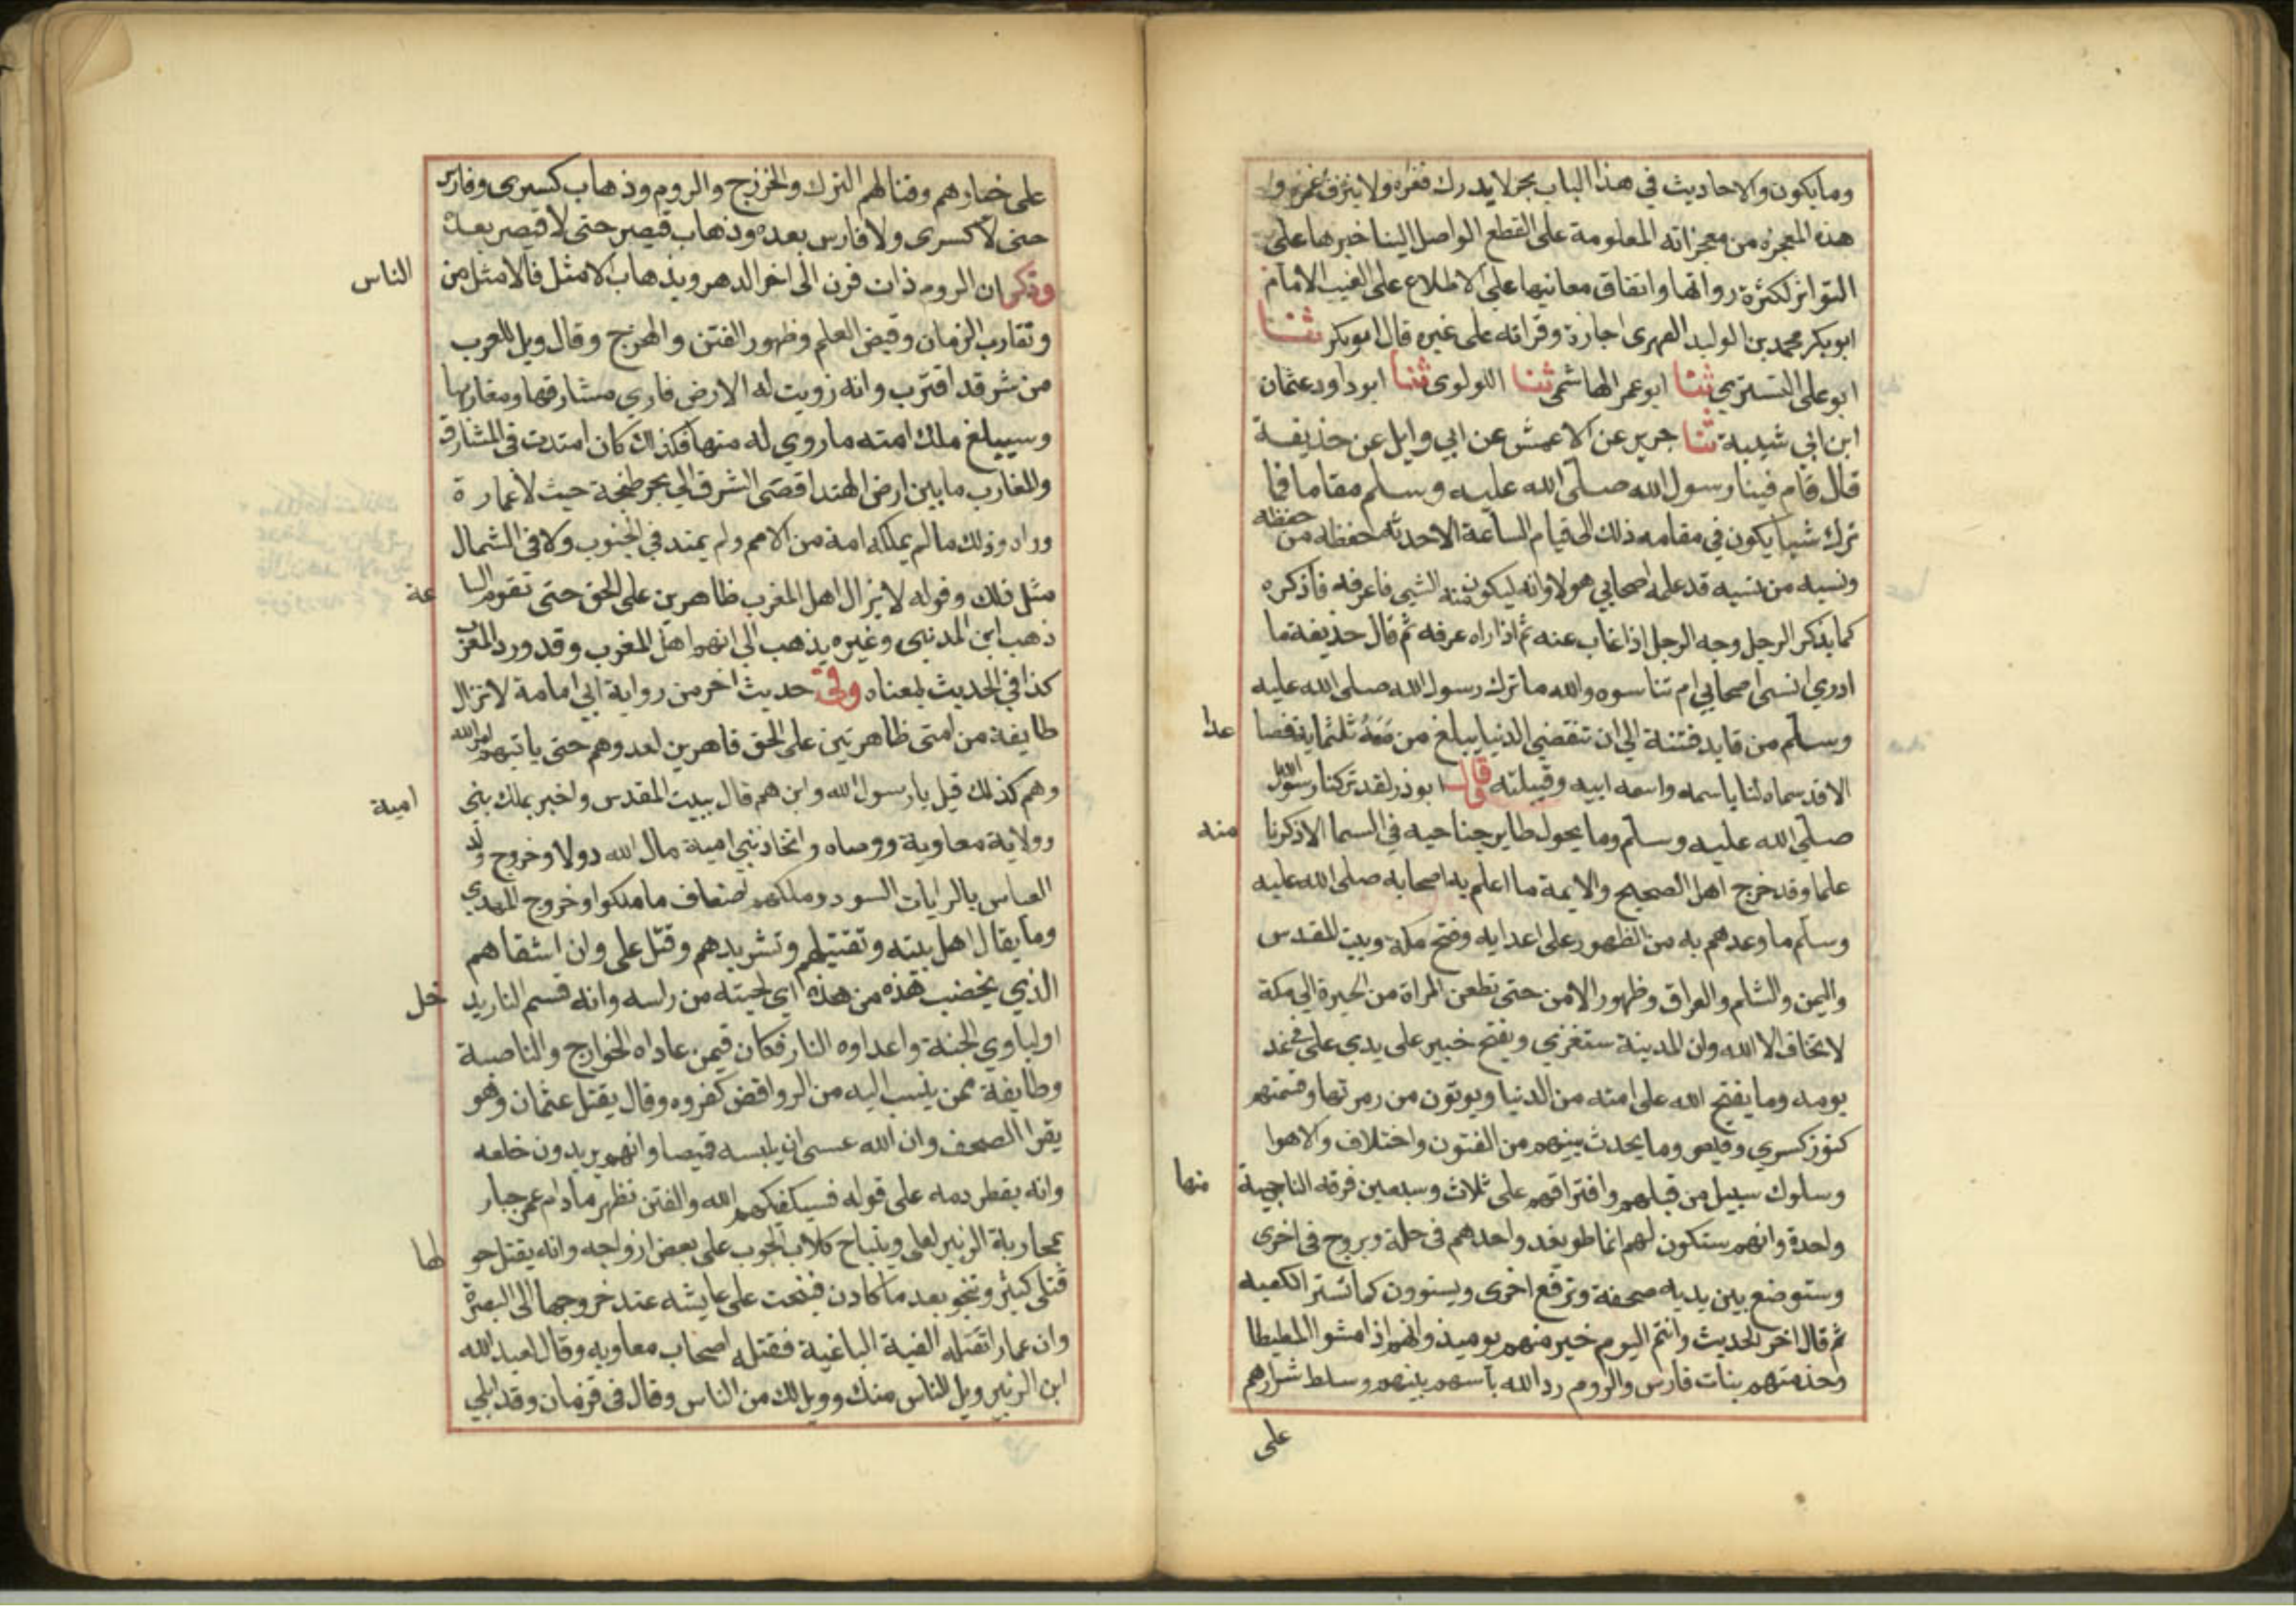 وما يكون والاحاديث في هذا الباب بحر لا يدرك قعره ولا ينزف غمره و
هذه المعجزة من معجزاته المعلومة على القطع الواصل الينا خبرها على
التواتر لكثرة رواتها واتفاق معانيها على الاطلاع على الغيب الامام
ابو بكر محمد بن الوليد الفهرى اجازة وقراته على غيره قال ابو بكر ثنا
ابو على التسترى ثنا ابو عمر الهاشمى ثنا اللولوى ثنا ابو داود عثمان
ابن ابي شيبة ثنا جرير عن الاعمش عن ابي وايل عن حذيفة
قال قام فينا رسول الله صلى الله عليه وسلم مقاما فما
ترك شيا يكون في مقامه ذلك الى قيام الساعة الا حدثه حفظه من حفظه
ونسيه من نسيه قد علمه اصحابي هولا وانه ليكون منه الشي فاعرفه فاذكره
كما يذكر الرجل وجه الرجل اذا غاب عنه ثم اذا راه عرفه ثم قال حذيفة ما
ادري انسى اصحابي ام تناسوه والله ما ترك رسول الله صلى الله عليه
وسلم من قايد فتنة الى ان تنقضي الدنيا يبلغ من معه ثلثماية فصا عدا
الا قد سماه لنا باسمه واسم ابيه وقبيلته قال ابو ذر لقد تركنا رسول الله
صلى الله عليه وسلم وما يحرك طاير جناحيه في السما الا ذكرنا منه
علما وقد خرج اهل الصحيح والايمة ما اعلم به اصحابه صلى الله عليه
وسلم ما وعدهم به من الظهور على اعدايه وفتح مكة وبيت المقدس
واليمن والشام والعراق وظهور الامن حتى تظعن المراة من الحيرة الى مكة
لا تخاف الا الله وان المدينة ستغزي ويفتح خيبر على يدي علي في غد
يومه وما يفتح الله على امته من الدنيا ويوتون من زهرتها وقسمتهم
كنوز كسري وقيصر وما يحدث بينهم من الفتون واختلاف والاهوا
وسلوك سبيل من قبلهم وافتراقهم على ثلاث وسبعين فرقه الناجية منها
واحدة وانهم ستكون لهم انماط ويغد واحدهم في حلة ويروح في اخرى
وستوضع بين يديه صحفة وترفع اخرى ويستوون كما تستر الكعبه
ثم قال اخر الحديث وانتم اليوم خير منهم يوميذ وانهم اذا مشوا المطيطا
وخدمتهم بنات فارس والروم رد الله باسهم بينهم وسلط شرارهم
على
على خيارهم وقتالهم الترك والخزرج والروم وذهاب كسرى وفارس
حتى لا كسرى ولا فارس بعده وذهاب قيصر حتى لا قيصر بعده
وذكر ان الروم ذات قرن الى اخر الدهر وبذهاب الامثل فالامثل من الناس
وتقارب الزمان وقبض العلم وظهور الفتن والهرج وقال ويل للعرب
من شر قد اقترب وانه زويت له الارض فاري مشارقها ومغاربها
وسيبلغ ملك امته ما زوي له منها فكذلك كان امتدت في المشارق
والمغارب ما بين ارض الهند اقصى الشرق الى بحر طنجة حيث لا عمارة
وراه وذلك ما لم يملكه امة من الامم ولم يمتد في الجنوب ولا في الشمال
مثل ذلك وقوله لا يزال اهل المغرب ظاهرين على الحق حتى تقوم السا عة
ذهب ابن المدنيى وغيره يذهب الى انهم اهل المغرب وقد ورد المغرب
كذا في الحديث بمعناه وفي حديث اخر من رواية ابي امامة لا تزال
طايفة من امتى ظاهرين على الحق قاهرين لعدوهم حتى ياتيهم امر الله
وهم كذلك قيل يا رسول الله واين هم قال ببيت المقدس واخبر بملك بني امية
وولاية معاوية ووصاه واتخاذ بني امية مال الله دولا وخروج ولد
العباس بالرايات السود وملكهم اضعاف ما ملكوا وخروج المهدي
وما يقال اهل بيته وتقتيلهم وتشريدهم وقتل على وان اشقاهم
الذي يخضب هذه من هذه اي لحيته من راسه وانه قسيم النار يد خل
اولياوي الجنة واعداوه النار فكان فيمن عاداه الخوارج والناصبة
وطايفة ممن ينسب اليه من الروافض كفروه وقال يقتل عثمان وهو
يقرا المصحف وان الله عسى ان يلبسه قميصا وانهم يريدون خلعه
وانه يقطر دمه على قوله فسيكفيكهم الله والفتن تظهر ما دام عمر جبار
بمحاربة الزبير لعلى وبنباح كلاب الحوب على بعض ازواجه وانه يقتل حو لها
قتلى كثير وتنجو بعد ما كادت فنبحت على عايشه عند خروجها الى البصرة
وان عمارا تقتله الفية الباغية فقتله اصحاب معاويه وقال لعبد الله
ابن الزبير ويل للناس منك وويل لك من الناس وقال في قزمان وقد ابلي